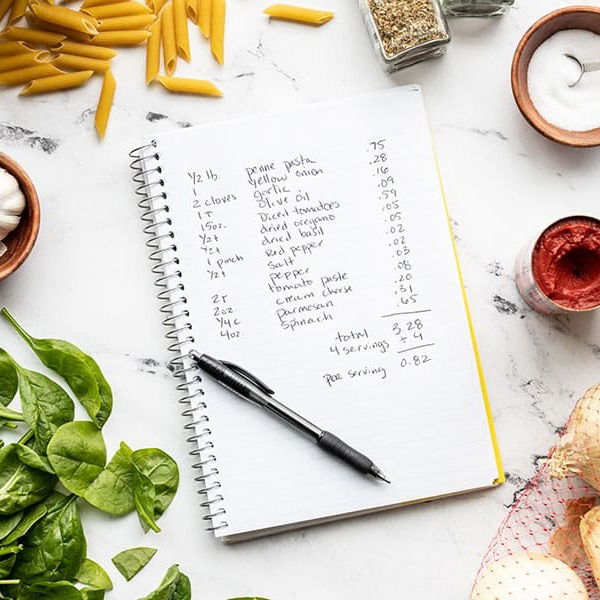 ½ lb penne pasta .75
1 yellow onion .28
2 cloves garlic .16
1 T olive oil .09
15oz. Diced tomatoes .59
½ t dried oregano .05
½ t dried basil .05
1 pinch Red pepper .02
½ t salt .02
pepper .03
2T tomato paste .08
2oz. cream cheese .20
¼ c parmesan .31
4oz. spinach .65
total 3.28
4 servings ÷ 4
per serving 0.82